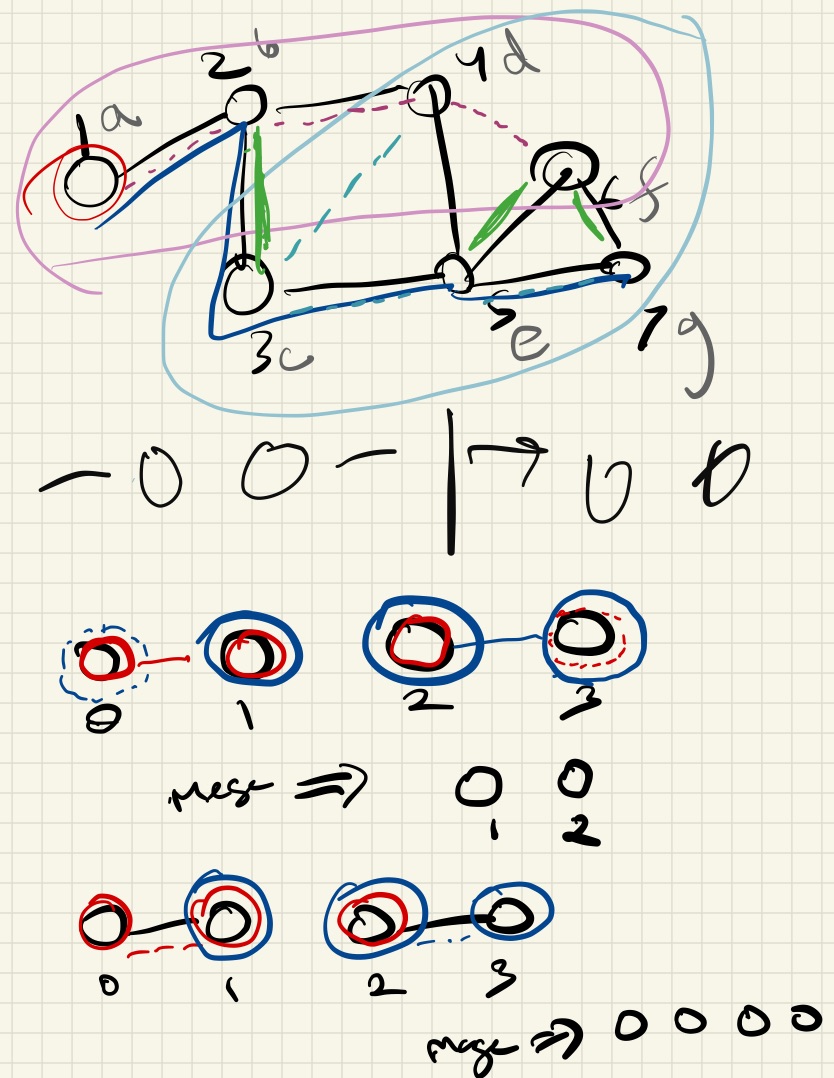 2 b
4 d
1 a
6 f
3 c
5 e
7 g
0 1 2 3
merge ⇒ 0 0
1 2
0 1 2 3
merge ⇒ 0 0 0 0